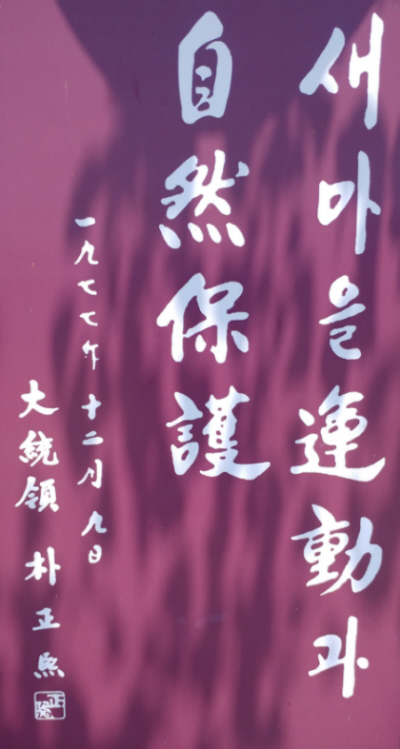 새마을運動과
自然保護
一九七七年十二月九日
大統領 朴正熙